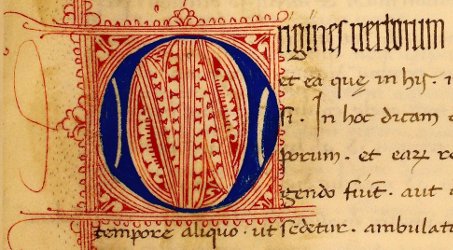 Origines nertorum
et ea quę in his. i
si. In hoc dicam
porum. et earꝝ re
gendo fiūt. aut
tempore aliquo. ut sedetur. ambulat